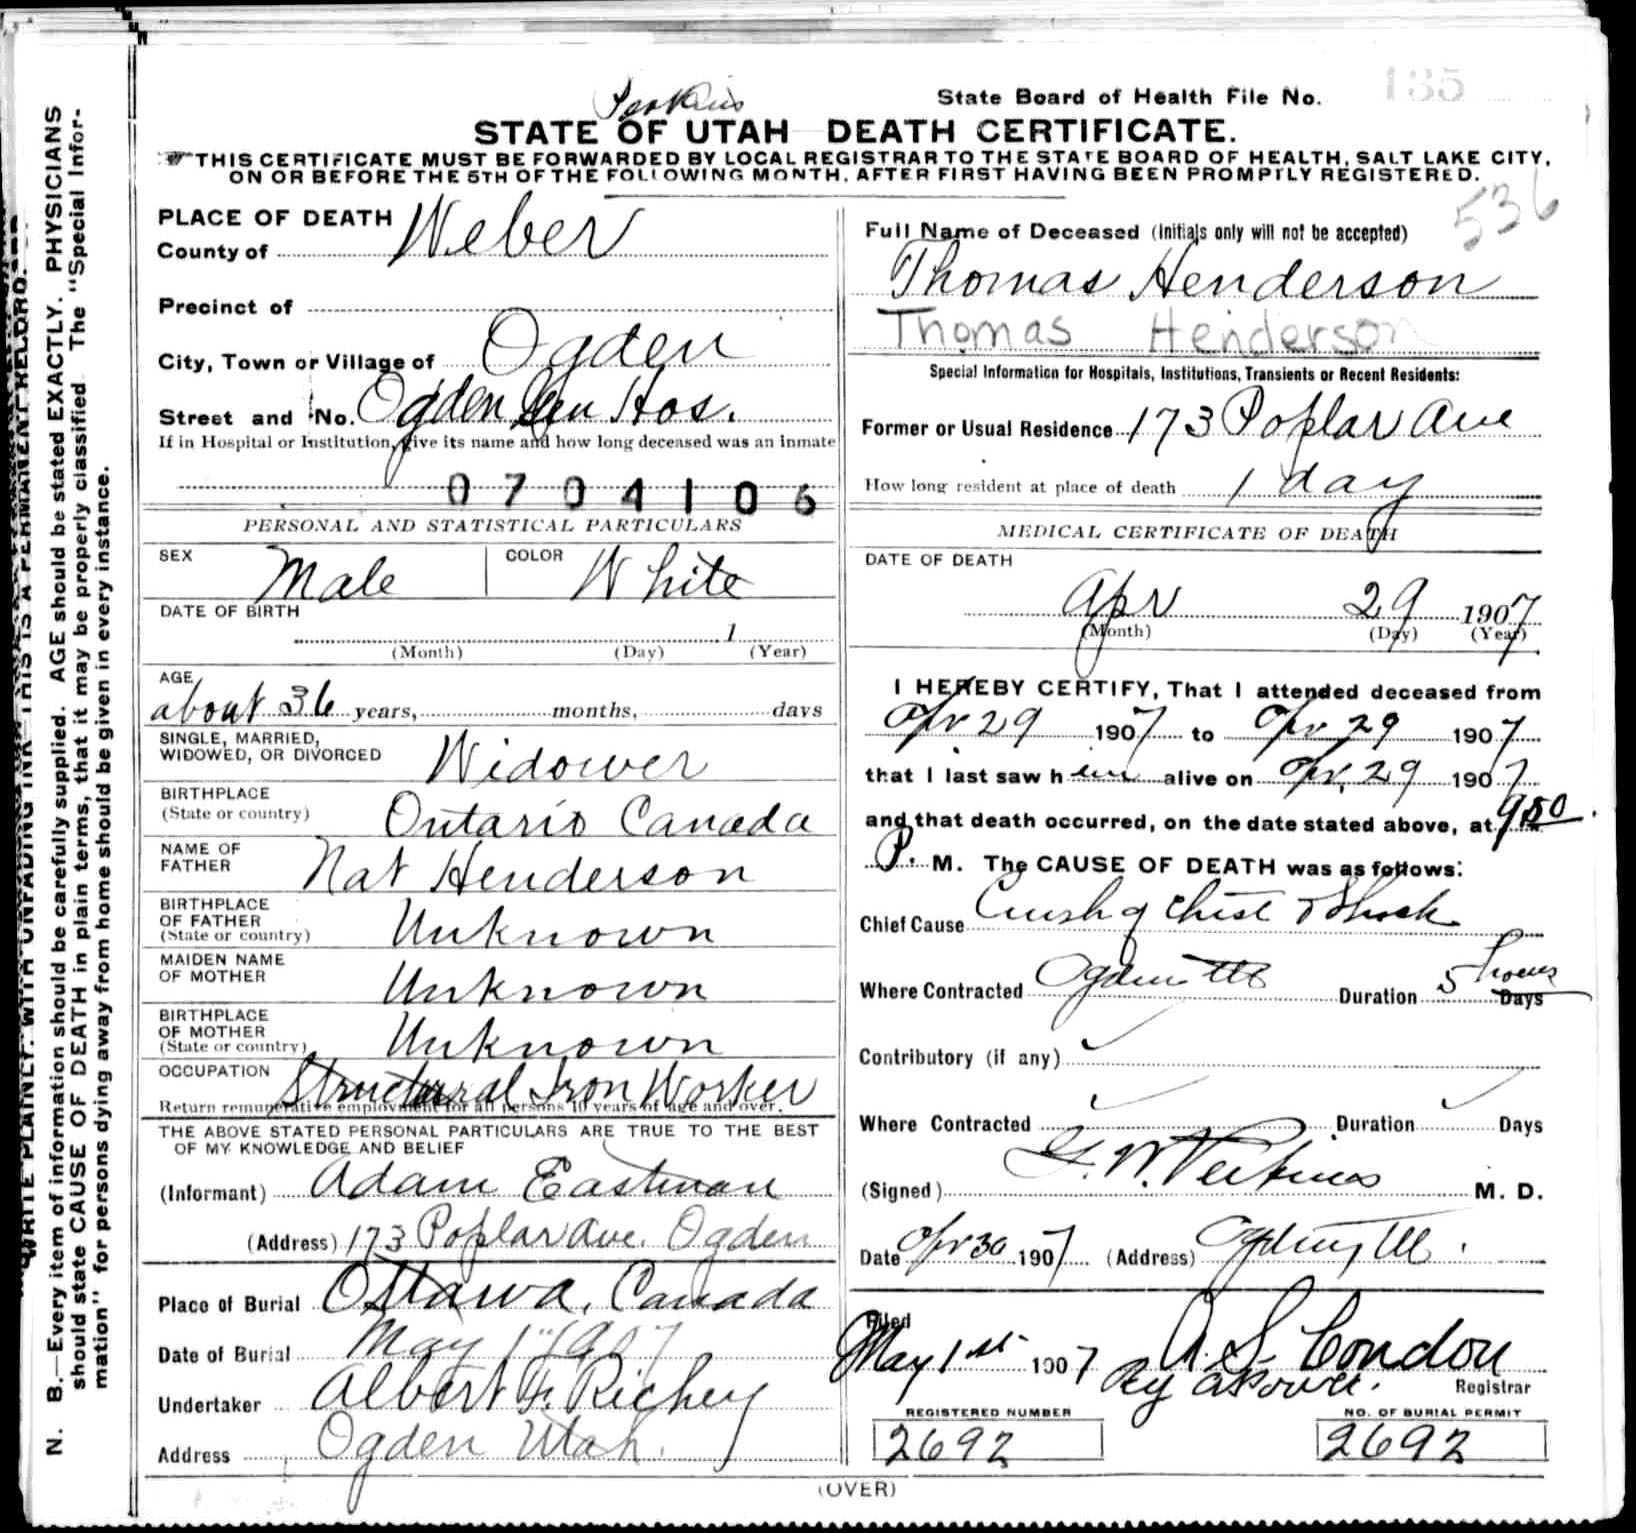 Perkins
State Board of Health File No. 135
STATE OF UTAH DEATH CERTIFICATE.
THIS CERTIFICATE MUST BE FORWARDED BY LOCAL REGISTRAR TO THE STATE BOARD OF HEALTH, SALT LAKE CITY,
ON OR BEFORE THE 5TH OF THE FOLLOWING MONTH, AFTER FIRST HAVING BEEN PROMPTLY REGISTERED.
536
PLACE OF DEATH
County of Weber
Precinct of
City, Town or Village of Ogden
Street and No. Ogden Gen Hos.
If in Hospital or Institution, give its name and how long deceased was an inmate
0704106
PERSONAL AND STATISTICAL PARTICULARS
SEX Male COLOR White
DATE OF BIRTH
1
(Month) (Day) (Year)
AGE
about 36 years, months, days
SINGLE, MARRIED,
WIDOWED, OR DIVORCED Widower
BIRTHPLACE
(State or country) Ontario Canada
NAME OF
FATHER Nat Henderson
BIRTHPLACE
OF FATHER
(State or country) Unknown
MAIDEN NAME
OF MOTHER Unknown
BIRTHPLACE
OF MOTHER
(State or country) Unknown
OCCUPATION Structural Iron Worker
Return remunerative employment for all persons 10 years of age and over.
THE ABOVE STATED PERSONAL PARTICULARS ARE TRUE TO THE BEST
OF MY KNOWLEDGE AND BELIEF
(Informant) Adam Eastman
(Address) 173 Poplar Ave. Ogden
Place of Burial Ottawa, Canada
Date of Burial May 1st 1907
Undertaker Albert F. Richey
Address Ogden Utah.
Full Name of Deceased (Initials only will not be accepted)
Thomas Henderson
Thomas Henderson
Special Information for Hospitals, Institutions, Transients or Recent Residents:
Former or Usual Residence 173 Poplar Ave
How long resident at place of death 1 day
MEDICAL CERTIFICATE OF DEATH
DATE OF DEATH
Apr 29 1907
(Month) (Day) (Year)
I HEREBY CERTIFY, That I attended deceased from
Apr 29 1907 to Apr 29 1907
that I last saw h im alive on Apr. 29 1907
and that death occurred, on the date stated above, at 9:50
P. M. The CAUSE OF DEATH was as follows:
Chief Cause Crush of Chest & Shock
Where Contracted Ogden Ut Duration 5 hours Days
Contributory (if any)
Where Contracted Duration Days
(Signed) G. W. Perkins M. D.
Date Apr 30 1907 (Address) Ogden, Ut.
Filed
May 1st 1907 A. S. Condon
By Registrar
REGISTERED NUMBER
2692
NO. OF BURIAL PERMIT
2692
(OVER)
WRITE PLAINLY, WITH UNFADING INK—THIS IS A PERMANENT RECORD.
N. B.—Every item of information should be carefully supplied. AGE should be stated EXACTLY. PHYSICIANS
should state CAUSE OF DEATH in plain terms, that it may be properly classified. The "Special Infor-
mation" for persons dying away from home should be given in every instance.